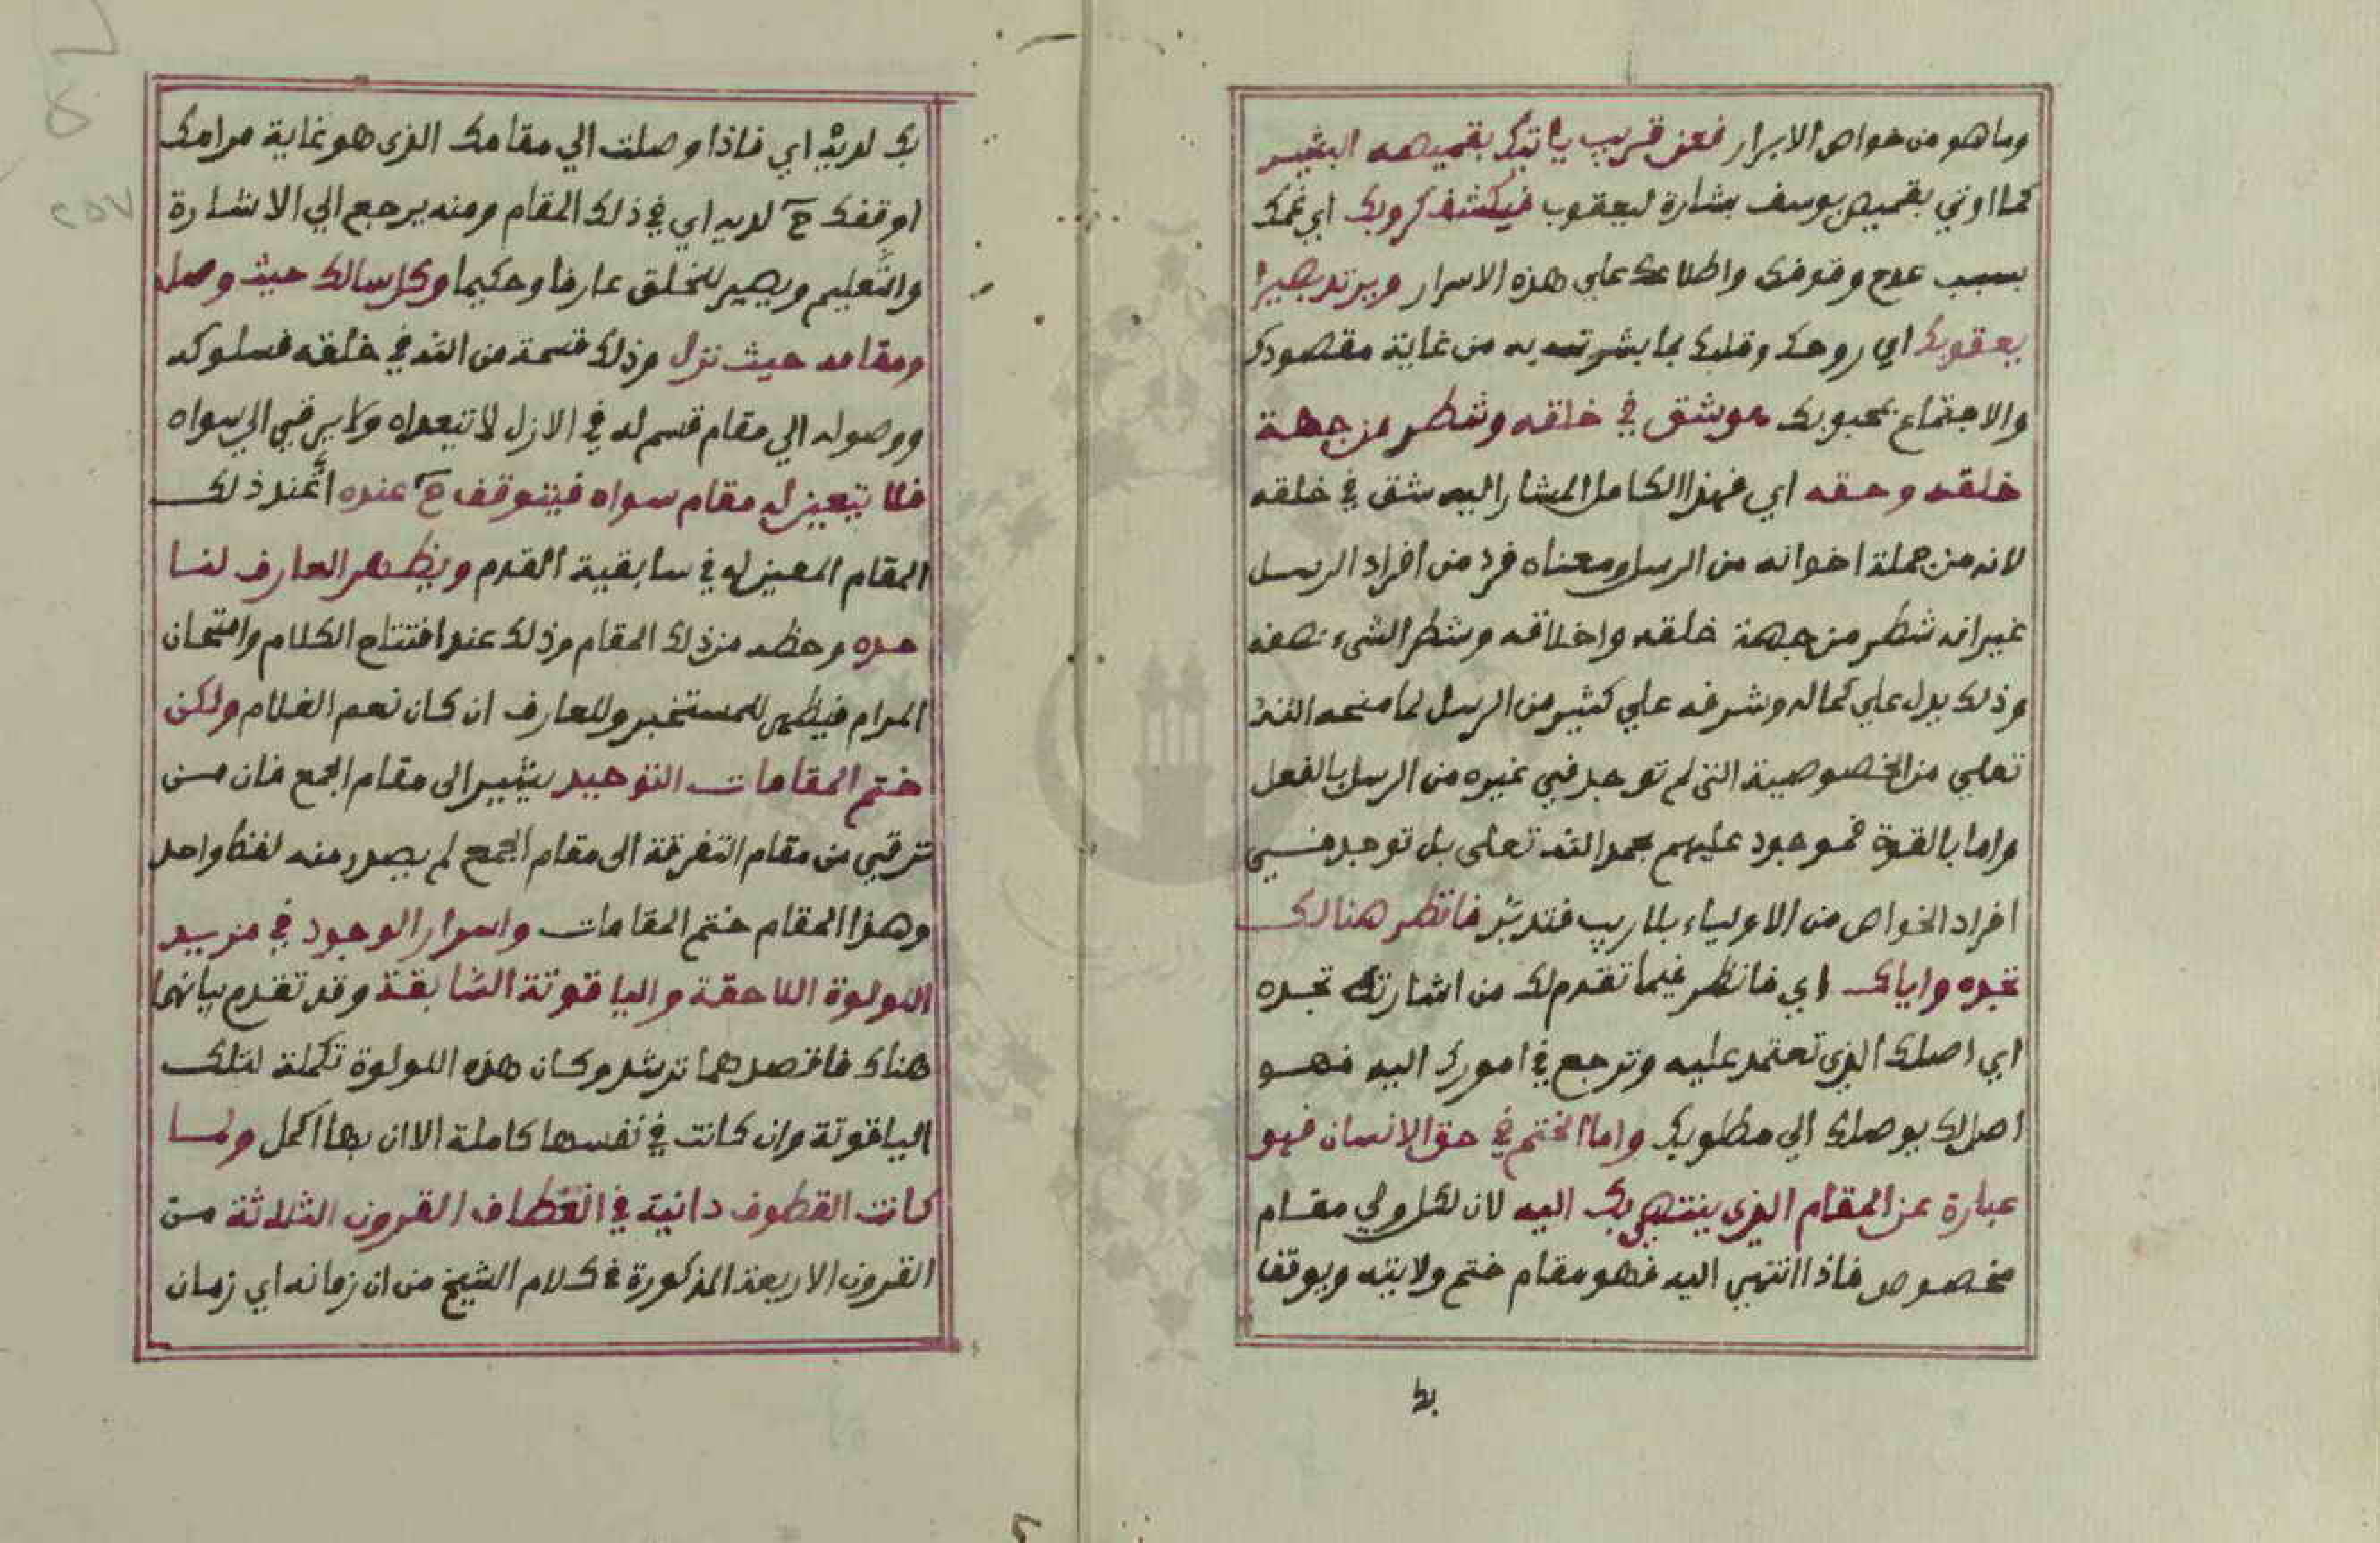 وما هو من خواص الابرار فعن قريب ياتيك بقميصه البشير
كما اوتي بقميص يوسف بشارة ليعقوب فيكشف كروبك اي غمك
بسبب عدم وقوفك واطلاعك علي هذه الاسرار ويرتد بصيرا
يعقوبك اي روحك وقلبك بما بشرته به من غاية مقصودك
والاجتماع بمحبوبك هو شق في خلقه وشطر من جهة
خلقه وحقه اي فهذا الكامل المشار اليه شق في خلقه
لانه من جملة اخوانه من الرسل ومعناه فرد من افراد الرسل
غير انه شطر من جهة خلقه واخلاقه وشطر الشيء نصفه
وذلك يدل علي كماله وشرفه علي كثير من الرسل لما منحه الله
تعلي من الخصوصية التي لم توجد في غيره من الرسل بالفعل
واما بالقوة فموجود عليهم بحمد الله تعلى بل توجد في
افراد الخواص من الاولياء بلا ريب فتدبّر فانظر هنالك
تجده واياك اي فانظر فيما تقدم لك من اشارتك تجده
اي اصلك الذي تعتمد عليه وترجع في امورك اليه فهو
اصل لك يوصلك الي مطلوبك واما الختم في حق الانسان فهو
عبارة عن المقام الذي ينتهي بك اليه لان لكل ولي مقام
مخصوص فاذا انتهي اليه فهو مقام ختم ولايته ويوقف
بك
بك لديه اي فاذا وصلت الي مقامك الذي هو غاية مرامك
اوقفك ح لديه اي في ذلك المقام ومنه يرجع الي الاشارة
والتّعليم ويصير للخلق عارفا وحكيما وكل سالك حيث وصل
ومقامه حيث نزل وذلك قسمة من الله في خلقه فسلوكه
ووصوله الي مقام قسم له في الازل لا تتعداه ولا يرقي الي سواه
فلا يتعين له مقام سواه فيتوقف ح عنده اي عند ذلك
المقام المعين له في سابقية القدم ويظهر العارف لنا
حده وحظه من ذلك المقام وذلك عند افتتاح الكلام وامتحان
المرام فيظهر للمستخبر وللعارف ان كان نعم الغلام ولكن
ختم المقامات التوحيد يشير الى مقام الجمع فان من
ترقي من مقام التفرقة الى مقام الجمع لم يصدر منه لفظ واحد
وهذا المقام ختم المقامات واسرار الوجود في مزيد
اللولوة اللاحقة والياقوتة السّابقة وقد تقدم بيانهما
هناك فاقصدهما ترشد وكان هذه اللولوة تكملة لتلك
الياقوتة وان كانت في نفسها كاملة الا ان بها اكمل ولما
كانت القطوف دانية في انعطاف القرون الثلاثة من
القرون الاربعة المذكورة في كلام الشيخ من ان زمانه اي زمان